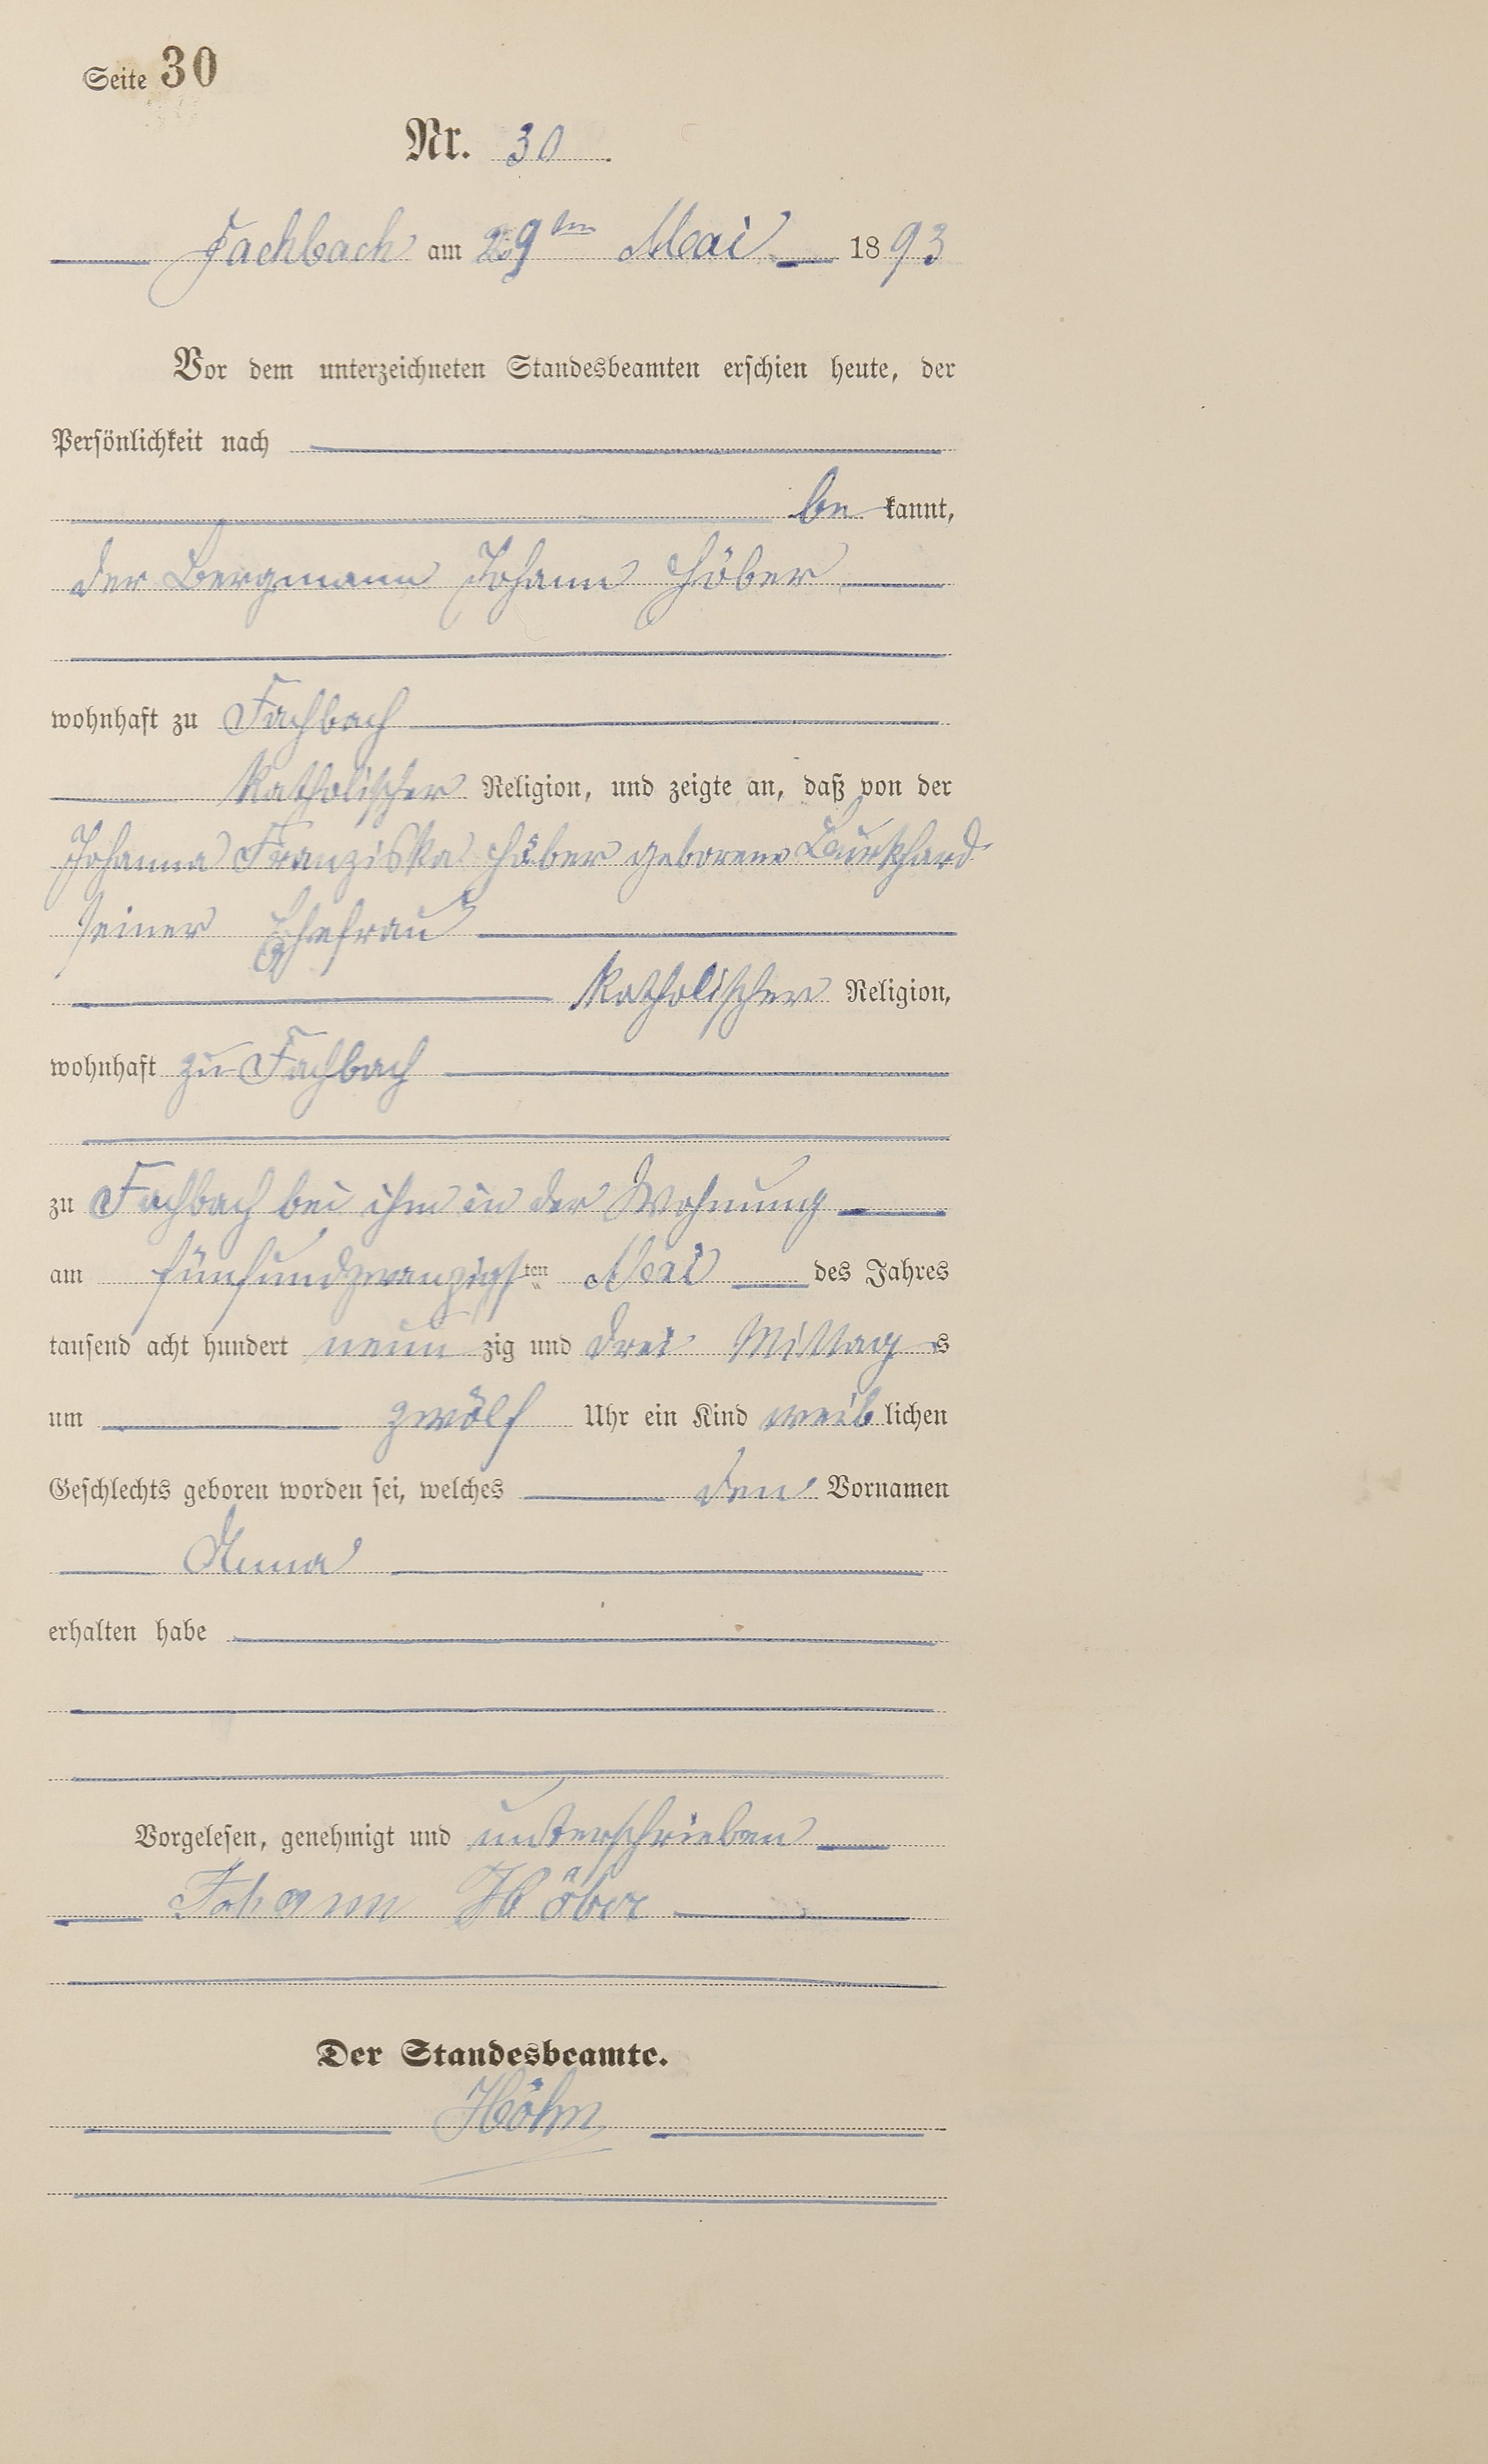 Seite 30
Nr. 30.
Fachbach am 29ten Mai 1893
Vor dem unterzeichneten Standesbeamten erschien heute, der
Persönlichkeit nach
be kannt,
der Bergmann Johann Höber
wohnhaft zu Fachbach
Katholischer Religion, und zeigte an, daß von der
Johanna Franziska Höber geborene Burkhard
seiner Ehefrau
Katholischer Religion,
wohnhaft zu Fachbach
zu Fachbach bei ihm in der Wohnung
am fünfundzwanzigsten Mai des Jahres
tausend acht hundert neun zig und drei Mittags
um zwölf Uhr ein Kind weiblichen
Geschlechts geboren worden sei, welches den Vornamen
Anna
erhalten habe
Vorgelesen, genehmigt und unterschrieben
Johann Höber
Der Standesbeamte.
Höhn